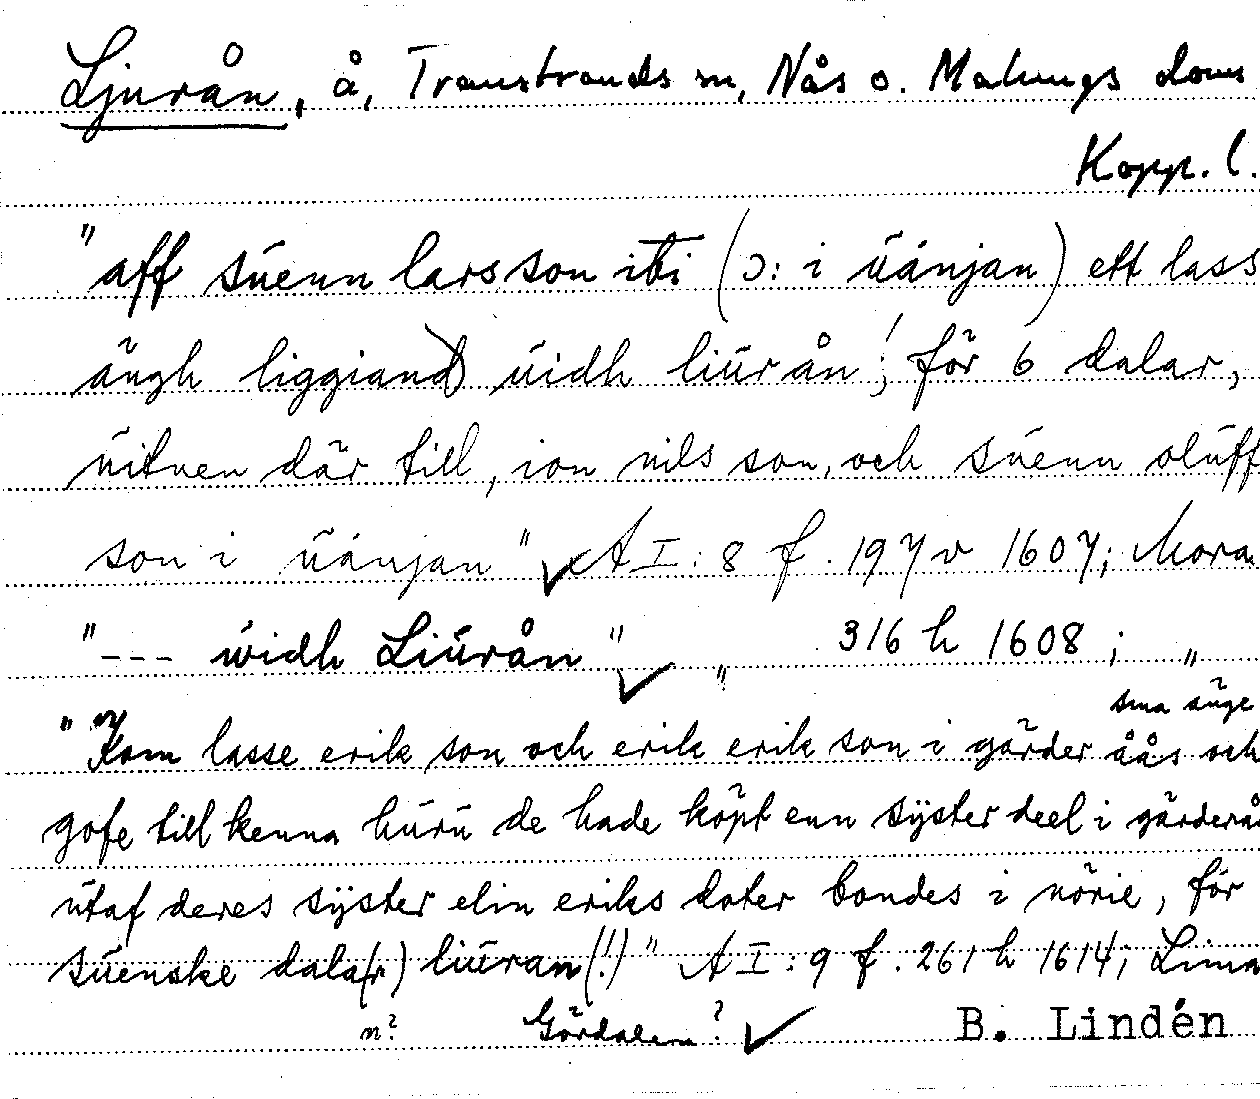 Ljurån, å, Transtrands sn, Nås o. Malungs doms
Kopp. l.
"aff süenn larsson ibi (ɔ: i üánjan) ett lass
ängh liggiand üidh liürån! för 6 dalar,
üitnen där till, ion nils son, och süenn olüff
son i üánjan" A I: 8 f. 197 v 1607; Mora
"--- widh Liürån" " 316 h 1608; "
sma änge
"Kom lasse erik son och erik erik son i görder åås och
gofe till kenna hürü de hade köpt enn sÿster deel i gärderå
ütaf deres sÿster elin eriks doter bondes i nörie, för
süenske dala(r) liüran(!)" A I: 9 f. 261 h 1614; Lima
n? Gördalen? B. Lindén